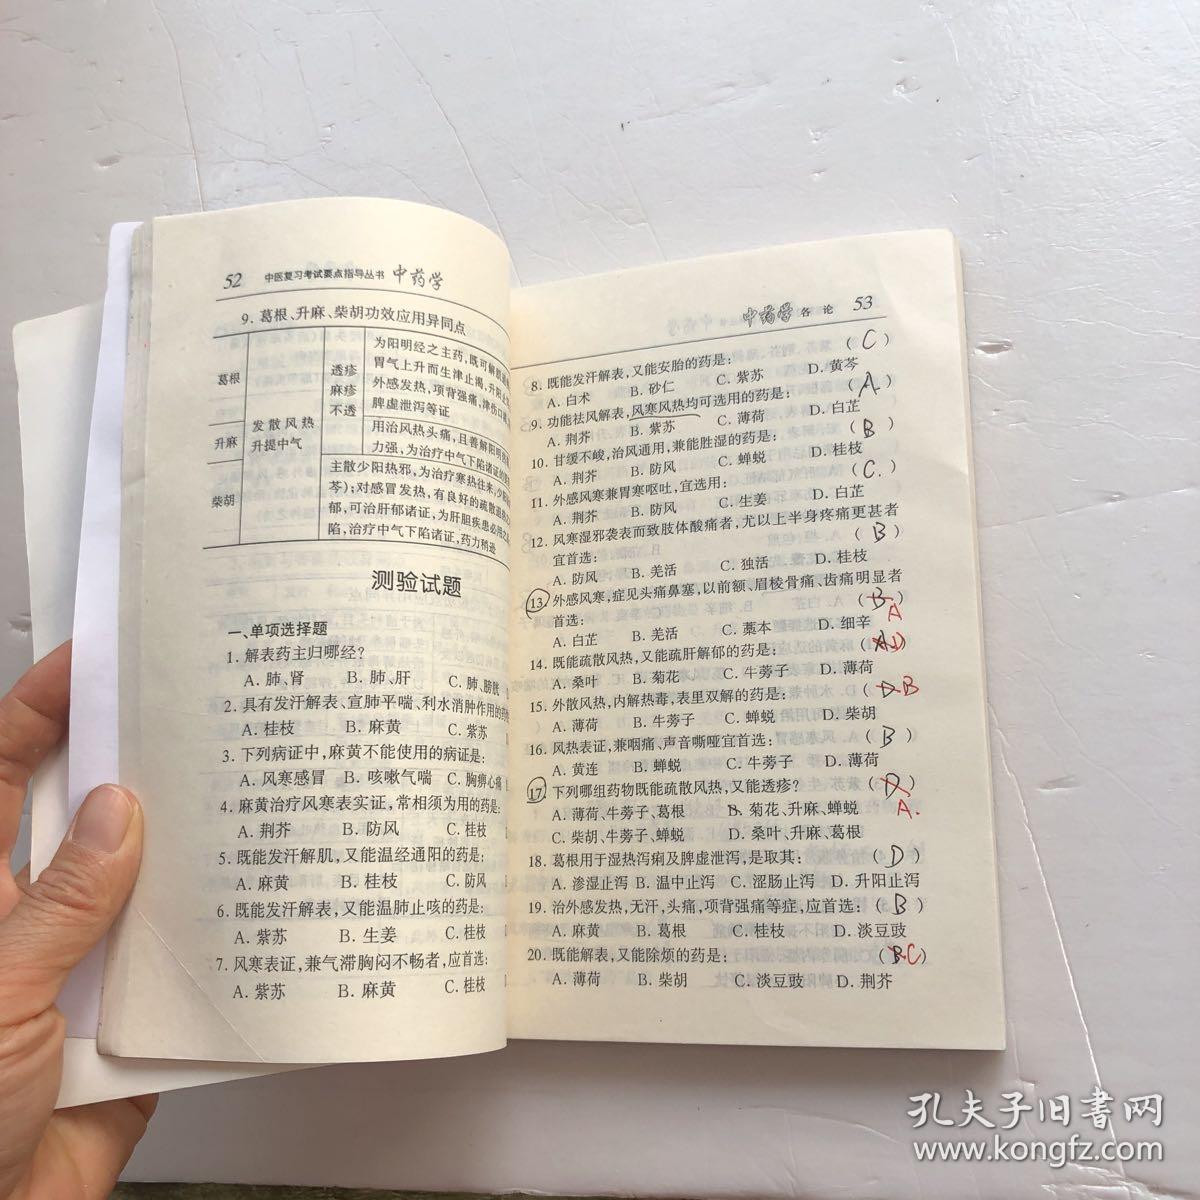 52 中医复习考试要点指导丛书 中药学
9. 葛根、升麻、柴胡功效应用异同点
葛根
升麻
柴胡
发散风热
升提中气
透疹
麻疹
不透
为阳明经之主药,既可解肌
胃气上升而生津止渴,升阳
外感发热,项背强痛,津伤口
脾虚泄泻等证
用治风热头痛,且善解阳明
力强,为治疗中气下陷诸证的
主散少阳热邪,为治疗寒热往来,少阳
芩);对感冒发热,有良好的疏散退热
郁,可治肝郁诸证,为肝胆疾患必用之
陷,治疗中气下陷诸证,药力稍逊
测验试题
一、单项选择题
1. 解表药主归哪经?
A. 肺、肾 B. 肺、肝 C. 肺、膀胱
2. 具有发汗解表、宣肺平喘、利水消肿作用的药
A. 桂枝 B. 麻黄 C. 紫苏
3. 下列病证中,麻黄不能使用的病证是:
A. 风寒感冒 B. 咳嗽气喘 C. 胸痹心痛
4. 麻黄治疗风寒表实证,常相须为用的药是:
A. 荆芥 B. 防风 C. 桂枝
5. 既能发汗解肌,又能温经通阳的药是:
A. 麻黄 B. 桂枝 C. 防风
6. 既能发汗解表,又能温肺止咳的药是:
A. 紫苏 B. 生姜 C. 桂枝
7. 风寒表证,兼气滞胸闷不畅者,应首选:
A. 紫苏 B. 麻黄 C. 桂枝
中药学 各 论 53
8. 既能发汗解表,又能安胎的药是: (C)
A. 白术 B. 砂仁 C. 紫苏 D. 黄芩
9. 功能祛风解表,风寒风热均可选用的药是: (A)
A. 荆芥 B. 紫苏 C. 薄荷 D. 白芷
10. 甘缓不峻,治风通用,兼能胜湿的药是: (B)
A. 荆芥 B. 防风 C. 蝉蜕 D. 桂枝
11. 外感风寒兼胃寒呕吐,宜选用: (C.)
A. 荆芥 B. 防风 C. 生姜 D. 白芷
12. 风寒湿邪袭表而致肢体酸痛者,尤以上半身疼痛更甚者
宜首选: (B)
A. 防风 B. 羌活 C. 独活 D. 桂枝
13. 外感风寒,症见头痛鼻塞,以前额、眉棱骨痛、齿痛明显者
首选: (B) A
A. 白芷 B. 羌活 C. 藁本 D. 细辛
14. 既能疏散风热,又能疏肝解郁的药是: (A D)
A. 桑叶 B. 菊花 C. 牛蒡子 D. 薄荷
15. 外散风热,内解热毒,表里双解的药是: (D B
A. 薄荷 B. 牛蒡子 C. 蝉蜕 D. 柴胡
16. 风热表证,兼咽痛、声音嘶哑宜首选: (B)
A. 黄连 B. 蝉蜕 C. 牛蒡子 D. 薄荷
17. 下列哪组药物既能疏散风热,又能透疹? (D) A.
A. 薄荷、牛蒡子、葛根 B. 菊花、升麻、蝉蜕
C. 柴胡、牛蒡子、蝉蜕 D. 桑叶、升麻、葛根
18. 葛根用于湿热泻痢及脾虚泄泻,是取其: (D)
A. 渗湿止泻 B. 温中止泻 C. 涩肠止泻 D. 升阳止泻
19. 治外感发热,无汗,头痛,项背强痛等症,应首选: (B)
A. 麻黄 B. 葛根 C. 桂枝 D. 淡豆豉
20. 既能解表,又能除烦的药是: (B C)
A. 薄荷 B. 柴胡 C. 淡豆豉 D. 荆芥
孔夫子旧书网
www.kongfz.com